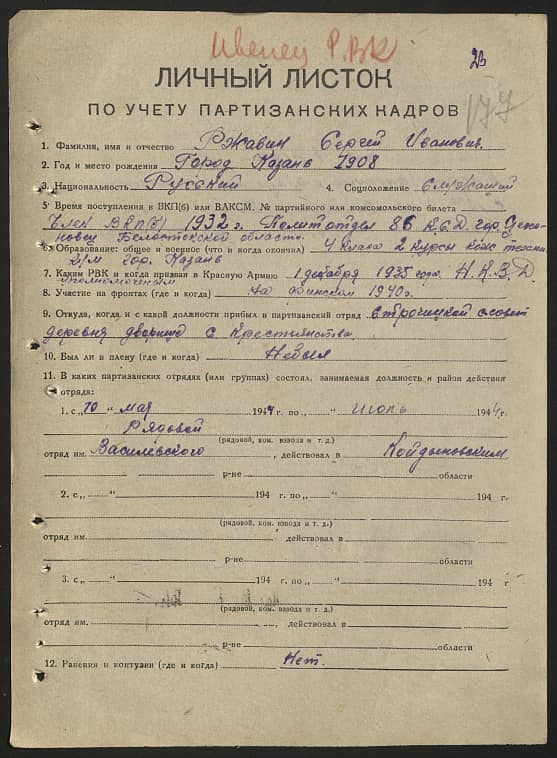 Ивенец РВК
23
ЛИЧНЫЙ ЛИСТОК
177
ПО УЧЕТУ ПАРТИЗАНСКИХ КАДРОВ
1. Фамилия, имя и отчество Ржавин Сергей Иванович.
2. Год и место рождения Город Казань 1908
3. Национальность Русский 4. Соцположение Служащий
5. Время поступления в ВКП(б) или ВЛКСМ, № партийного или комсомольского билета
Член ВКП(б) 1932 г. Политотдел 86 К.С.Д. гор.
Белостокской области.
6. Образование: общее и военное (что и когда окончил) 4 класа 2 курсы
гор. Казань
7. Каким РВК и когда призван в Красную Армию 1 декабря 1935 года. Н.К.В.Д.
8. Участие на фронтах (где и когда) на Финском 1940 г.
9. Откуда, когда и с какой должности прибыл в партизанский отряд с Троицкой
деревня дворище с Крестьянства.
10. Был ли в плену (где и когда) Небыл
11. В каких партизанских отрядах (или группах) состоял, занимаемая должность и район действия
отряда:
1. с „10 “ мар 1944 г. по „ “ июль 1944 г.
Рядовой
(рядовой, ком. взвода и т. д.)
отряд им. Василевского, действовал в Койдыновским
р-не области
2. с „ “ 194 г. по „ “ 194 г.
(рядовой, ком. взвода и т. д.)
отряд им. действовал в
р-не области
3. с „ “ 194 г. по „ “ 194 г.
(рядовой, ком. взвода и т. д.)
отряд им. , действовал в
р-не области
12. Ранения и контузии (где и когда) Нет.